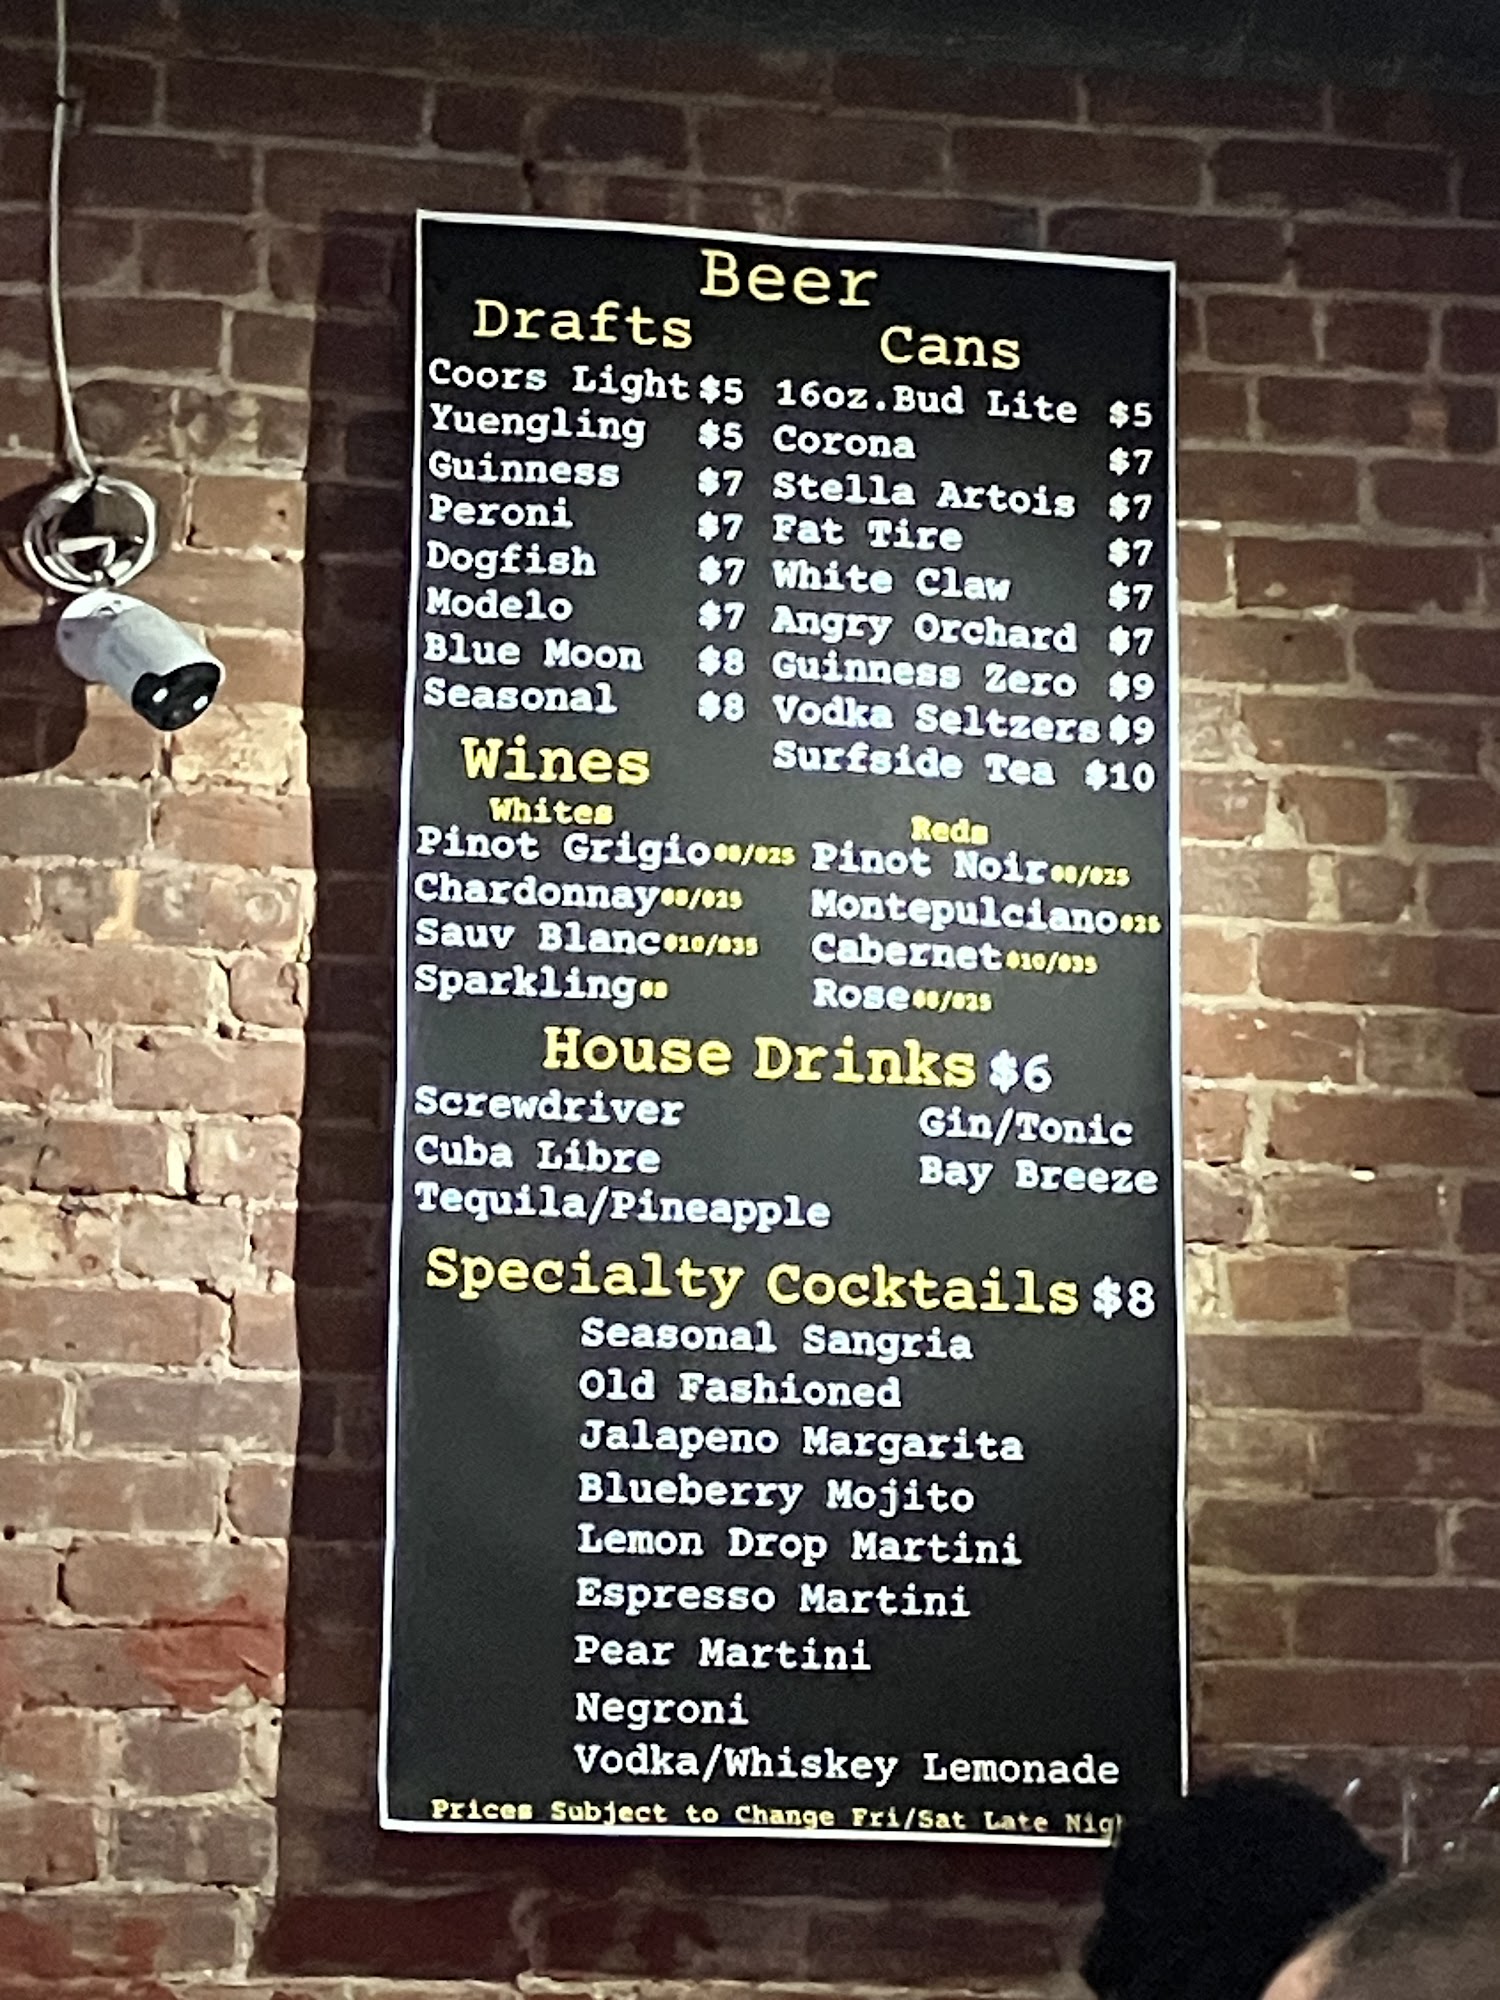 Beer
Drafts
Coors Light $5
Yuengling $5
Guinness $7
Peroni $7
Dogfish $7
Modelo $7
Blue Moon $8
Seasonal $8
Cans
16oz.Bud Lite $5
Corona $7
Stella Artois $7
Fat Tire $7
White Claw $7
Angry Orchard $7
Guinness Zero $9
Vodka Seltzers $9
Surfside Tea $10
Wines
Whites
Pinot Grigio $8/$25
Chardonnay $8/$25
Sauv Blanc $10/$35
Sparkling $8
Reds
Pinot Noir $8/$25
Montepulciano $25
Cabernet $10/$35
Rose $8/$25
House Drinks $6
Screwdriver
Cuba Libre
Tequila/Pineapple
Gin/Tonic
Bay Breeze
Specialty Cocktails $8
Seasonal Sangria
Old Fashioned
Jalapeno Margarita
Blueberry Mojito
Lemon Drop Martini
Espresso Martini
Pear Martini
Negroni
Vodka/Whiskey Lemonade
Prices Subject to Change Fri/Sat Late